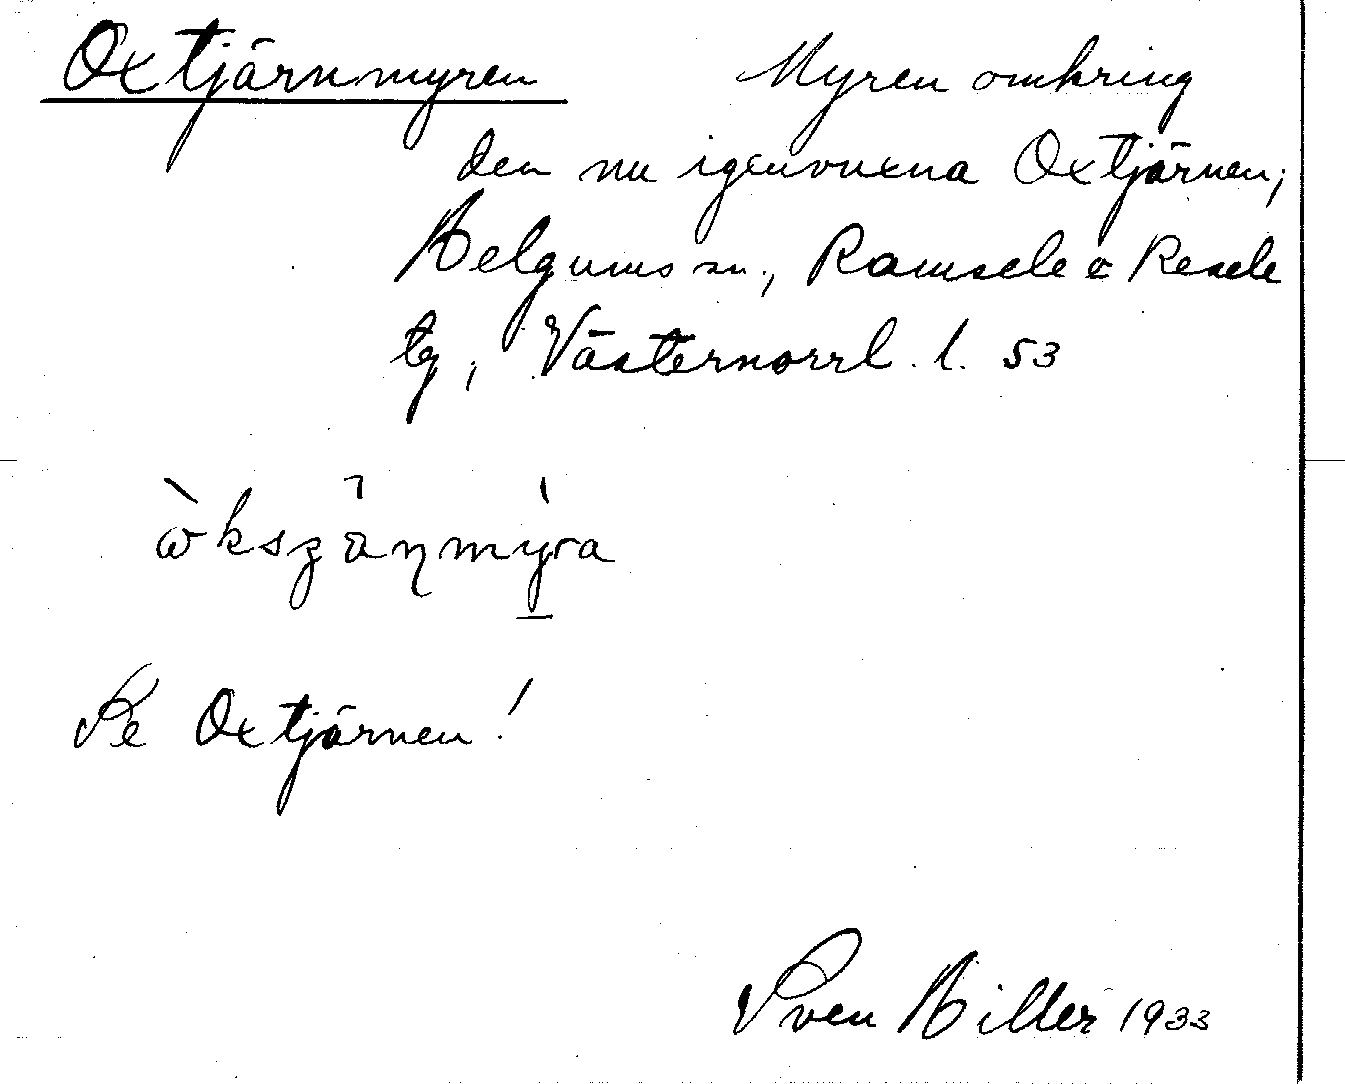 Oxtjärnmyren Myren omkring
den nu igenvuxna Oxtjärnen;
Helgums sn., Ramsele o Resele
tg, Västernorrl. l. 53
Se Oxtjärnen!
Sven Hiller 1933